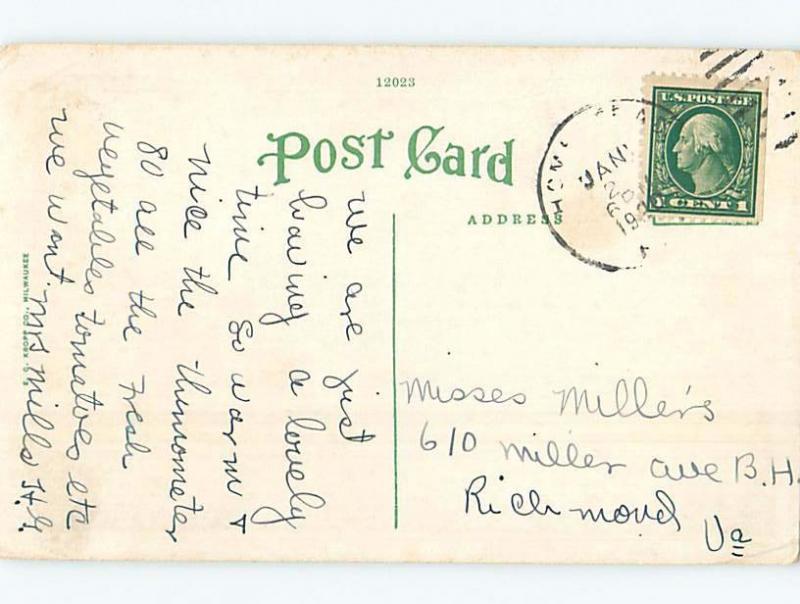 12023
Post Card
ADDRESS
U.S. POSTAGE
1 CENT 1
JAN
we are just
having a lovely
time so warm +
nice the thurmometer
80 all the Fresh
vegetables tomatoes etc
we want. Mrs Mills H.G.
E. C. KROPP CO., MILWAUKEE
Misses Miller's
610 Miller ave B.H.
Richmond
Va